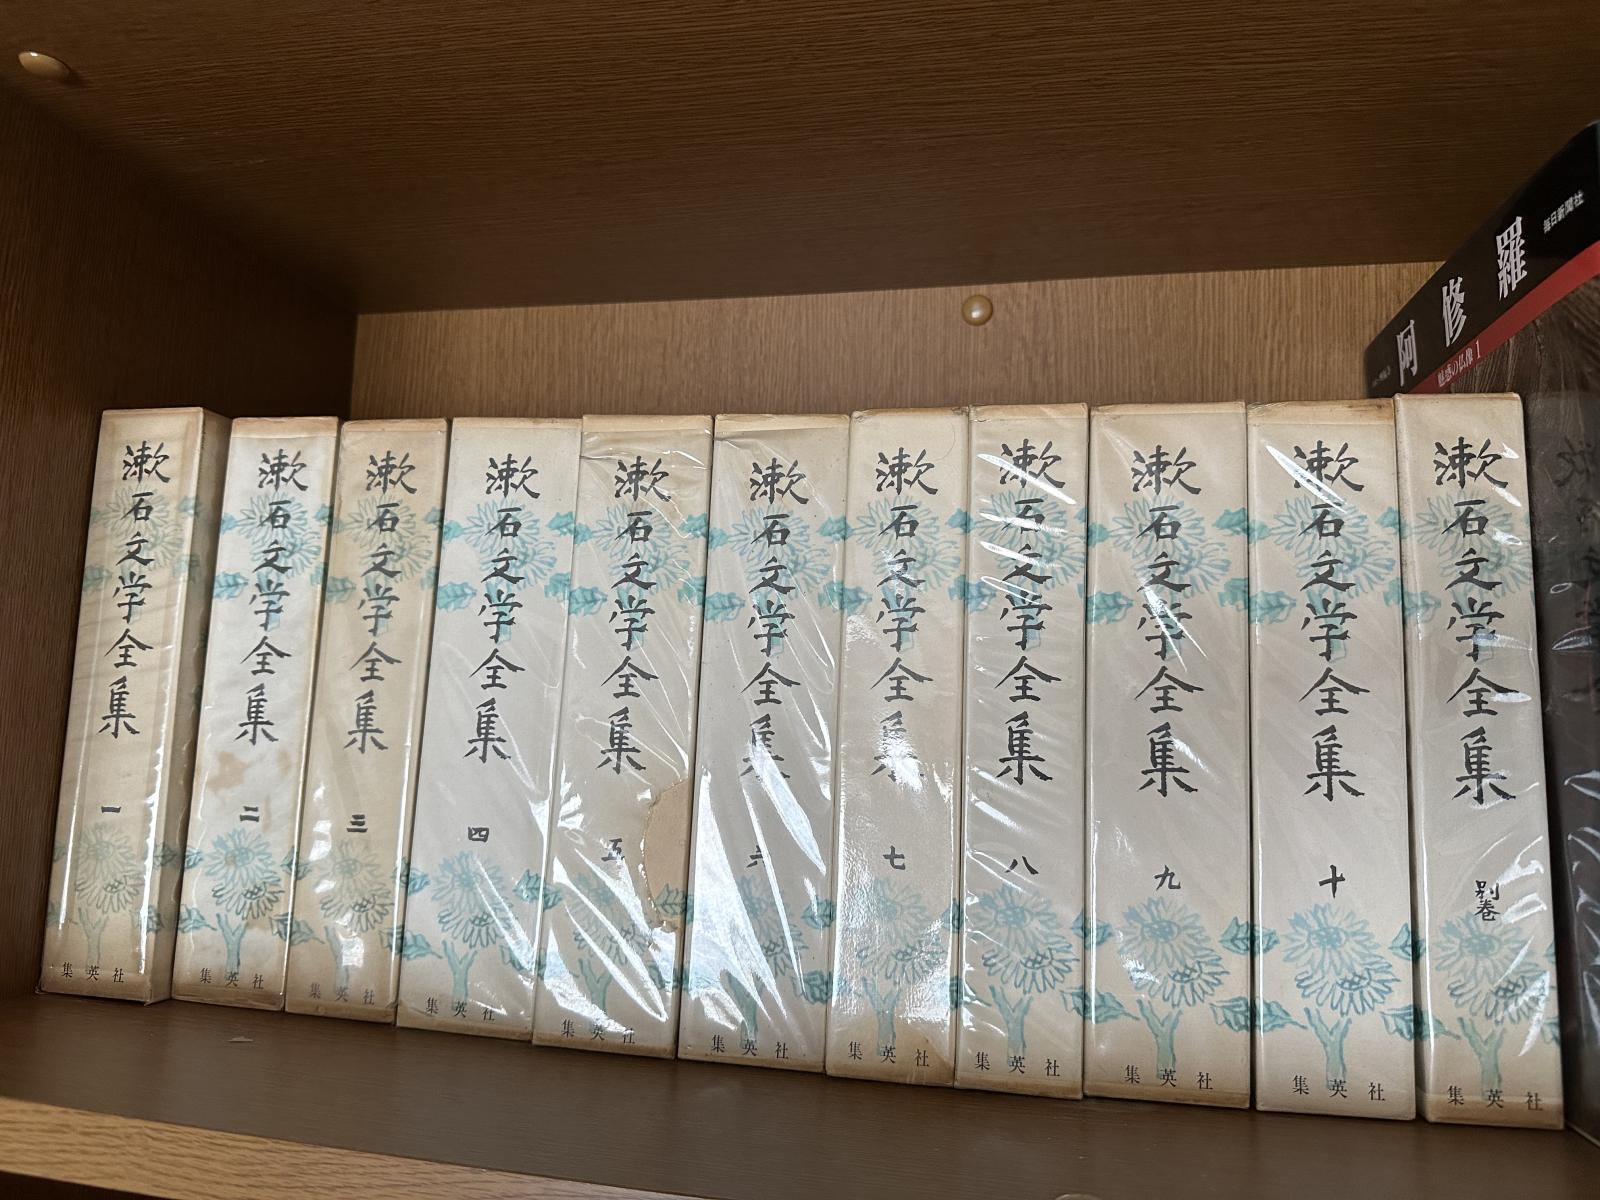 漱石文学全集
一
集英社
漱石文学全集
二
集英社
漱石文学全集
三
集英社
漱石文学全集
四
集英社
漱石文学全集
五
集英社
漱石文学全集
六
集英社
漱石文学全集
七
集英社
漱石文学全集
八
集英社
漱石文学全集
九
集英社
漱石文学全集
十
集英社
漱石文学全集
別巻
集英社
阿修羅
毎日新聞社
魅惑の仏像 1